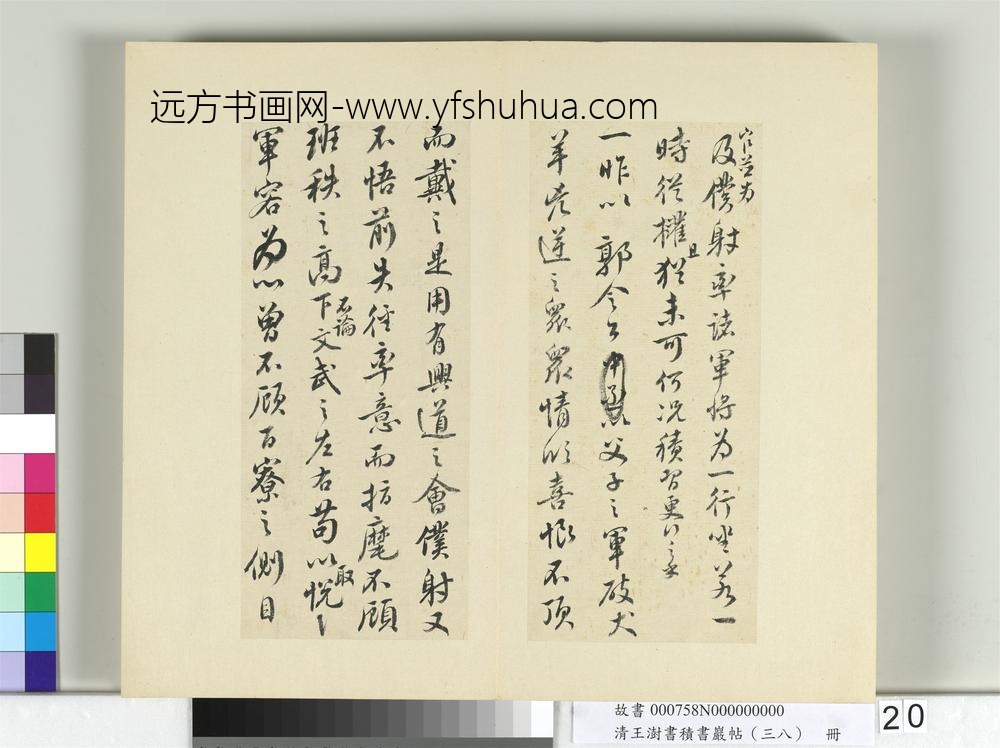 远方书画网-www.yfshuhua.com
官並為
及僕射率諸軍將為一行坐若一
時從權且猶未可何況積習更行之乎
一昨以郭令公以父子之軍破犬
羊兇逆之衆衆情欣喜恨不頂
而戴之是用有興道之會僕射又
不悟前失徑率意而指麾不顧
班秩之高下不論文武之左右苟以取悅
軍容為心曾不顧百寮之側目
故書 000758N000000000
清王澍書積書巖帖（三八） 冊
20